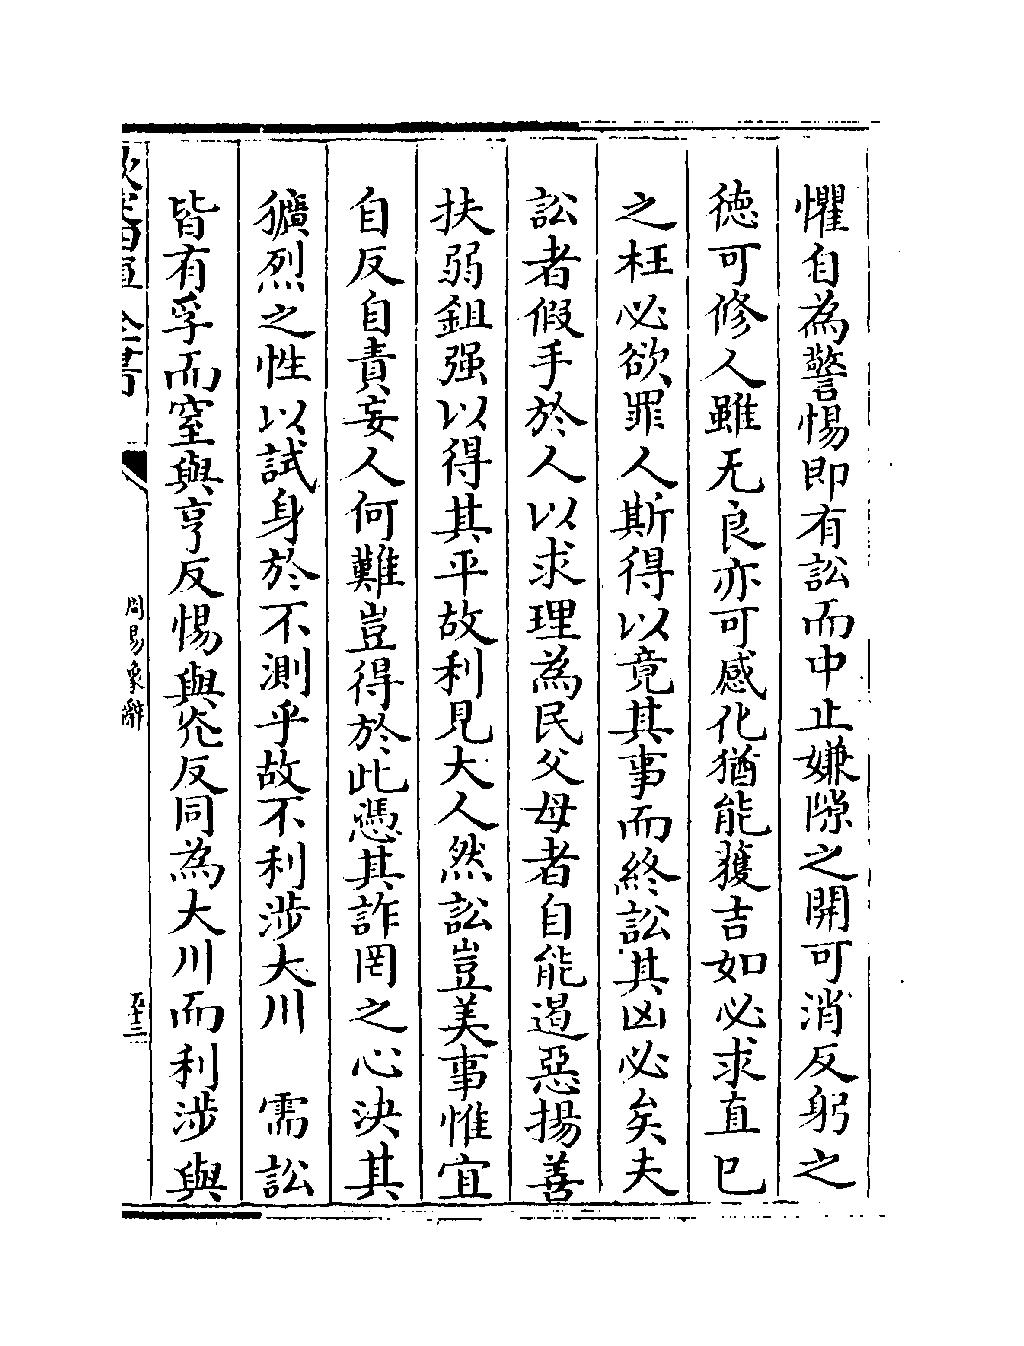 懼自為警惕即有訟而中止嫌隙之開可消反躬之
徳可修人雖无良亦可感化猶能獲吉如必求直已
之枉必欲罪人斯得以竟其事而終訟其凶必矣夫
訟者假手於人以求理為民父母者自能遏惡揚善
扶弱鉏强以得其平故利見大人然訟豈美事惟宜
自反自責妄人何難豈得於此憑其詐罔之心決其
獷烈之性以試身於不測乎故不利涉大川　需訟
皆有孚而窒與亨反惕與光反同為大川而利涉與
欽定四庫全書
周易象辭
五十三